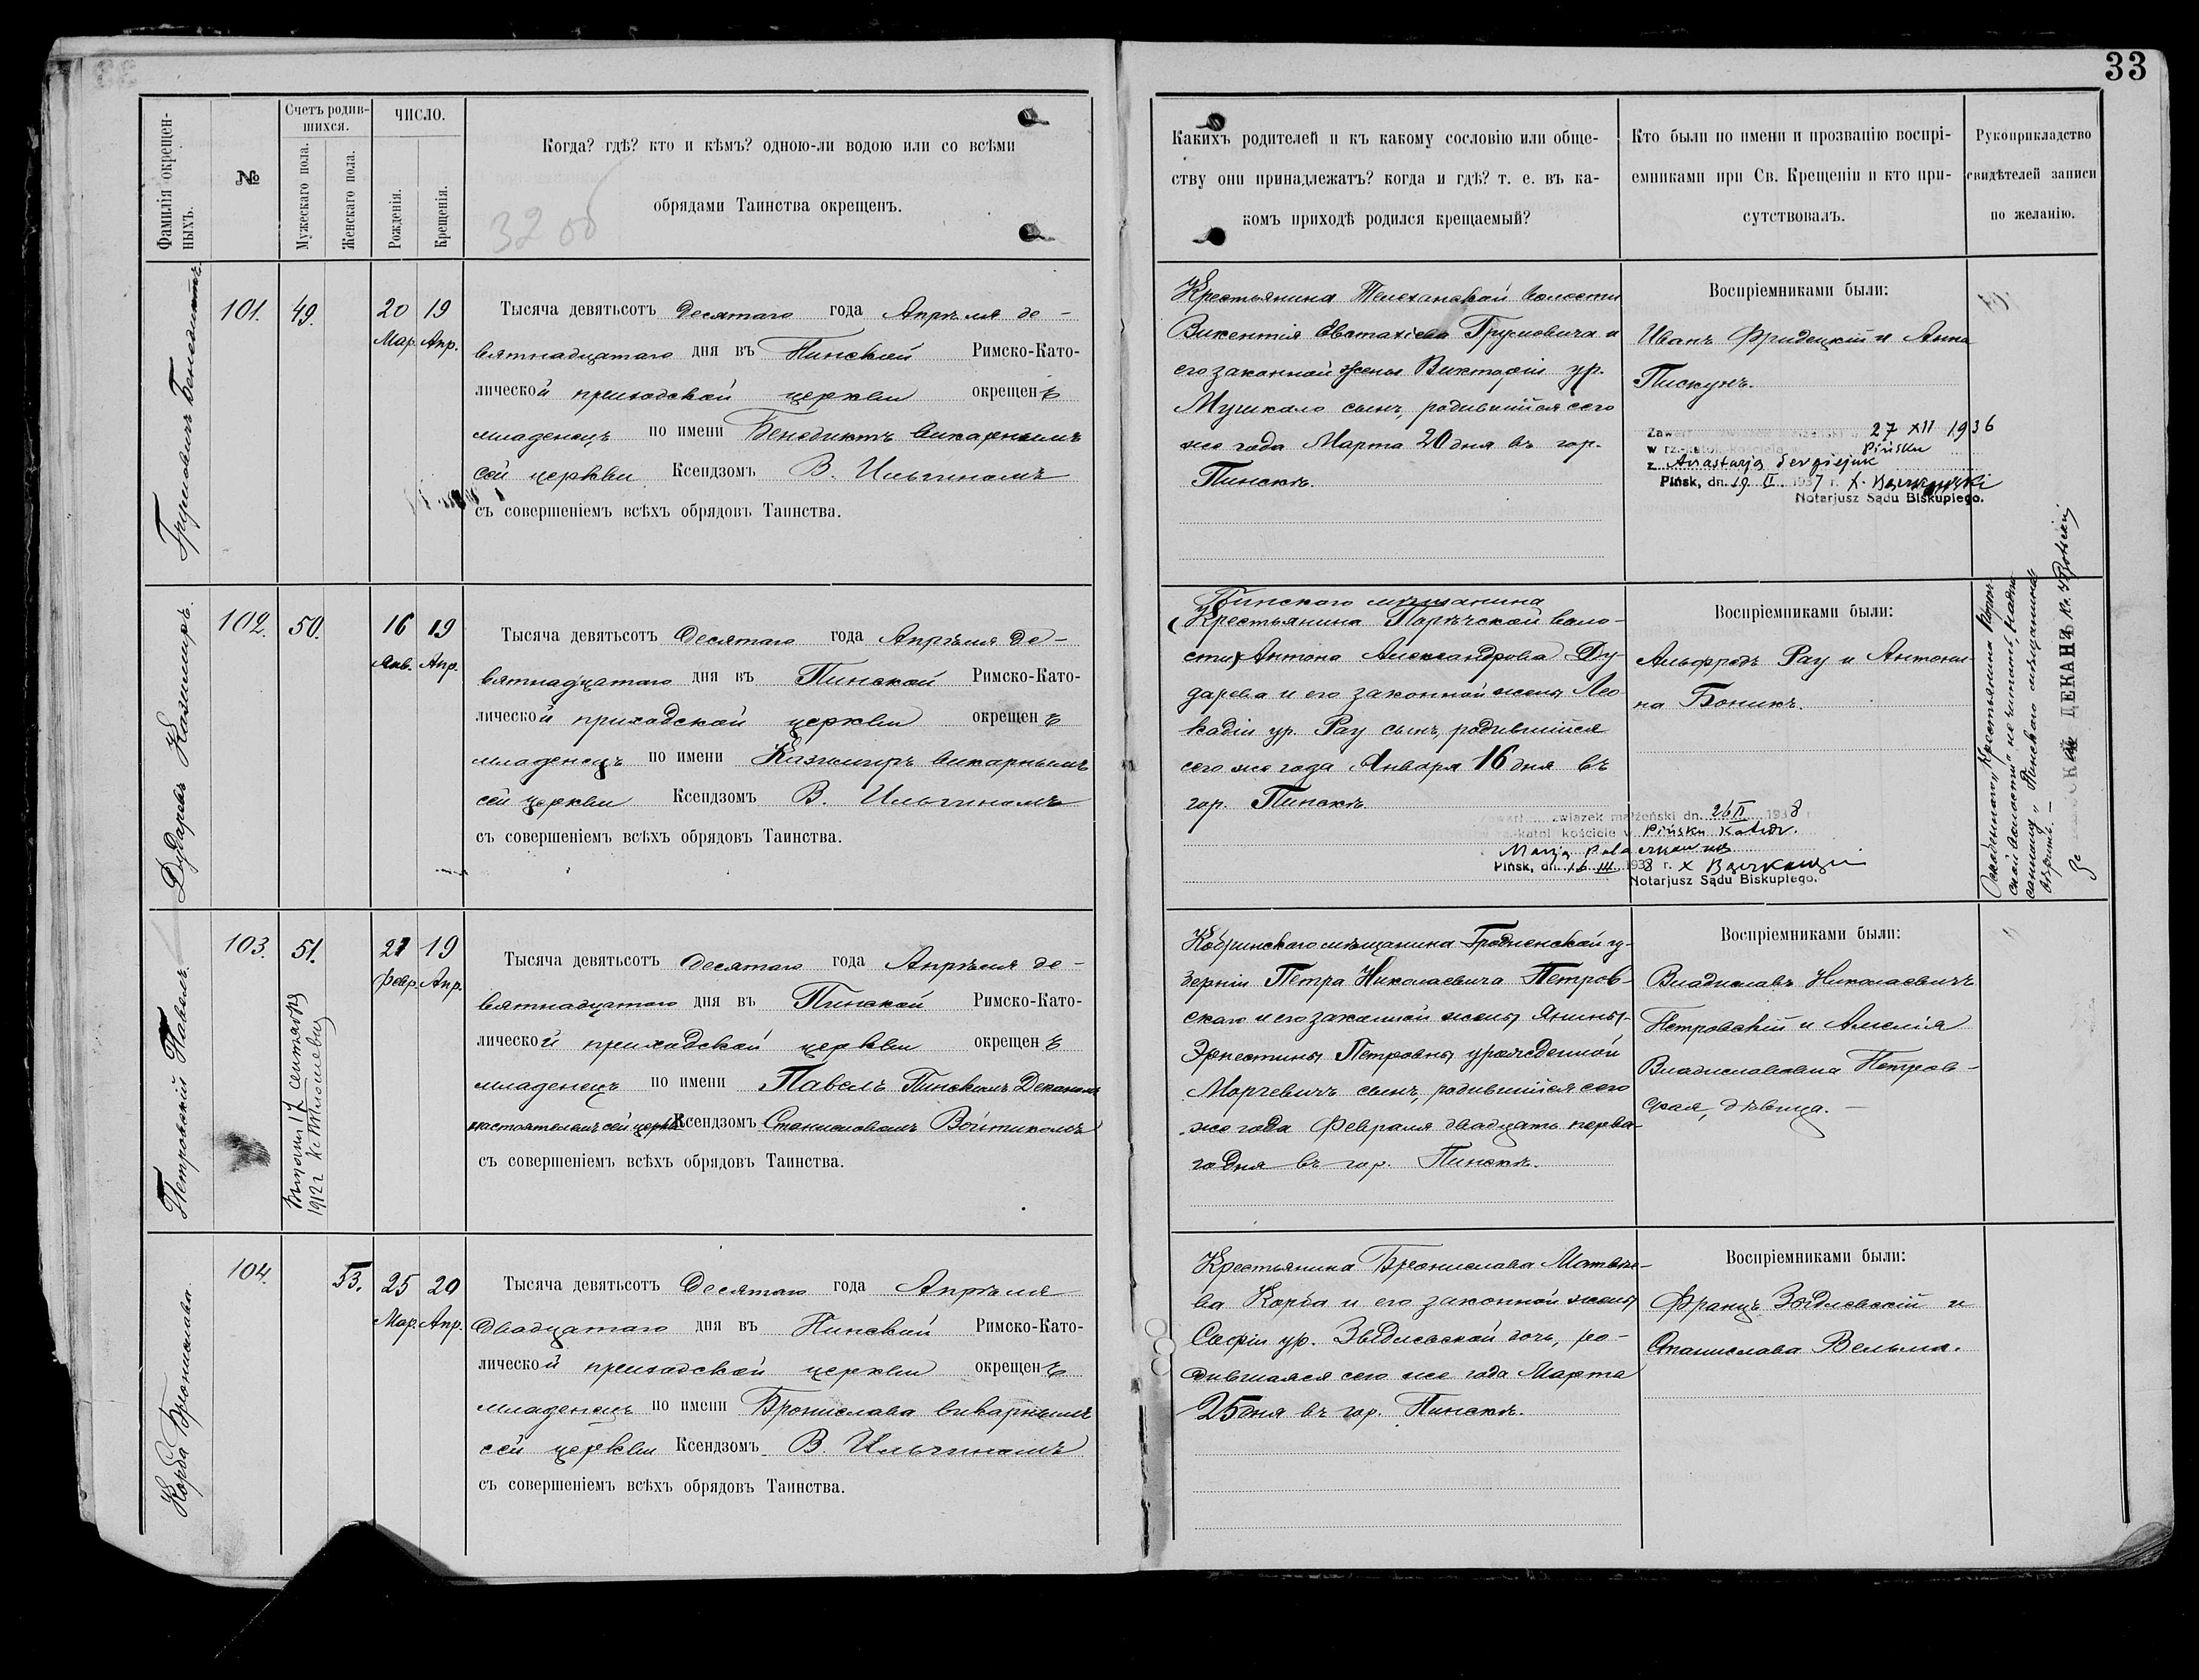 33
Фамилія окрещен-
ныхъ.
№
Счетъ родив-
шихся.
Мужескаго пола.
Женскаго пола.
ЧИСЛО.
Рожденія.
Крещенія.
Когда? гдѣ? кто и кѣмъ? одною-ли водою или со всѣми
обрядами Таинства окрещенъ.
3200
Какихъ родителей и къ какому сословію или обще-
ству они принадлежатъ? когда и гдѣ? т. е. въ ка-
комъ приходѣ родился крещаемый?
Кто были по имени и прозванію воспрі-
емниками при Св. Крещеніи и кто при-
сутствовалъ.
Рукоприкладство
свидѣтелей записи
по желанію.
Грумовичъ Бенедиктъ.
101.
49.
20 19
Мар. Апр.
Тысяча девятьсотъ десятаго года Апрѣля де-
вятнадцатаго дня въ Пинской Римско-Като-
лической приходской церкви окрещенъ
младенецъ по имени Бенедиктъ викарнымъ
сей церкви Ксендзомъ В. Ильгиномъ
съ совершеніемъ всѣхъ обрядовъ Таинства.
Крестьянина Телеханской волости
Викентія Евстахіева Грумовича и
его законной жены Викторіи ур.
Мушкало сынъ, родившійся сего
же года Марта 20 дня въ гор.
Пинскѣ.
Воспріемниками были:
Иванъ Фридецкій и Анна
Пискунъ.
27 XII 1936
w rz.-katol. kościele w Pińsku
z Anastazją Sergiejuk
Pińsk, dn. 19 II 1937 r. X.
Notarjusz Sądu Biskupiego.
Дударевъ Казимиръ.
102.
50.
16 19
Янв. Апр.
Тысяча девятьсотъ десятаго года Апрѣля де-
вятнадцатаго дня въ Пинской Римско-Като-
лической приходской церкви окрещенъ
младенецъ по имени Казимиръ викарнымъ
сей церкви Ксендзомъ В. Ильгиномъ
съ совершеніемъ всѣхъ обрядовъ Таинства.
Пинского мѣщанина
(Крестьянина Порѣчской воло-
сти) Антона Александрова Ду-
дарева и его законной жены Лео-
кадіи ур. Рау сынъ, родившійся
сего же года Января 16 дня въ
гор. Пинскѣ.
Воспріемниками были:
Альфредъ Рау и Антони-
на Боникъ.
związek małżeński dn. 26 II 1938 r.
rz.-katol. kościele w Pińsku Katedr.
Marją
Pińsk, dn. 16 III 1938 r. X
Notarjusz Sądu Biskupiego.
„Крестьянина Порѣч-
ской волости" не читать,
„Пинского мѣщанина"
вѣрить.—
За ДЕКАНА Кс.
Петровскій Павелъ.
103.
51.
21 19
Февр. Апр.
17 сентября
1912 г.
Тысяча девятьсотъ десятаго года Апрѣля де-
вятнадцатаго дня въ Пинской Римско-Като-
лической приходской церкви окрещенъ
младенецъ по имени Павелъ Пинскимъ Деканомъ
настоятелемъ сей церкви Ксендзомъ Станиславомъ Войтикомъ
съ совершеніемъ всѣхъ обрядовъ Таинства.
Кобринского мѣщанина Гродненской гу-
берніи Петра Николаевича Петров-
скаго и его законной жены Янины-
Эрнестины Петровны урожденной
Моргевичъ сынъ, родившійся сего
же года Февраля двадцать перва-
го дня въ гор. Пинскѣ.
Воспріемниками были:
Владиславъ Николаевичъ
Петровскій и Амелія
Владиславовна Петров-
ская, дѣвица.—
Корба Бронислава.
104.
53.
25 20
Мар. Апр.
Тысяча девятьсотъ десятаго года Апрѣля
двадцатаго дня въ Пинской Римско-Като-
лической приходской церкви окрещенъ
младенецъ по имени Бронислава викарнымъ
сей церкви Ксендзомъ В. Ильгиномъ
съ совершеніемъ всѣхъ обрядовъ Таинства.
Крестьянина Бронислава Матвѣе-
ва Корба и его законной жены
Софіи ур. Звѣдлевской дочь, ро-
дившаяся сего же года Марта
25 дня въ гор. Пинскѣ.
Воспріемниками были:
Францъ Звѣдлевскій и
Станислава Вельма.